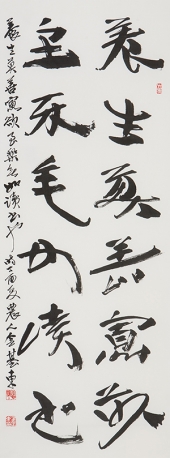 養生莫善寡欲
至樂無如讀書
養生莫善寡欲至樂無如讀書 夏 農人金基東